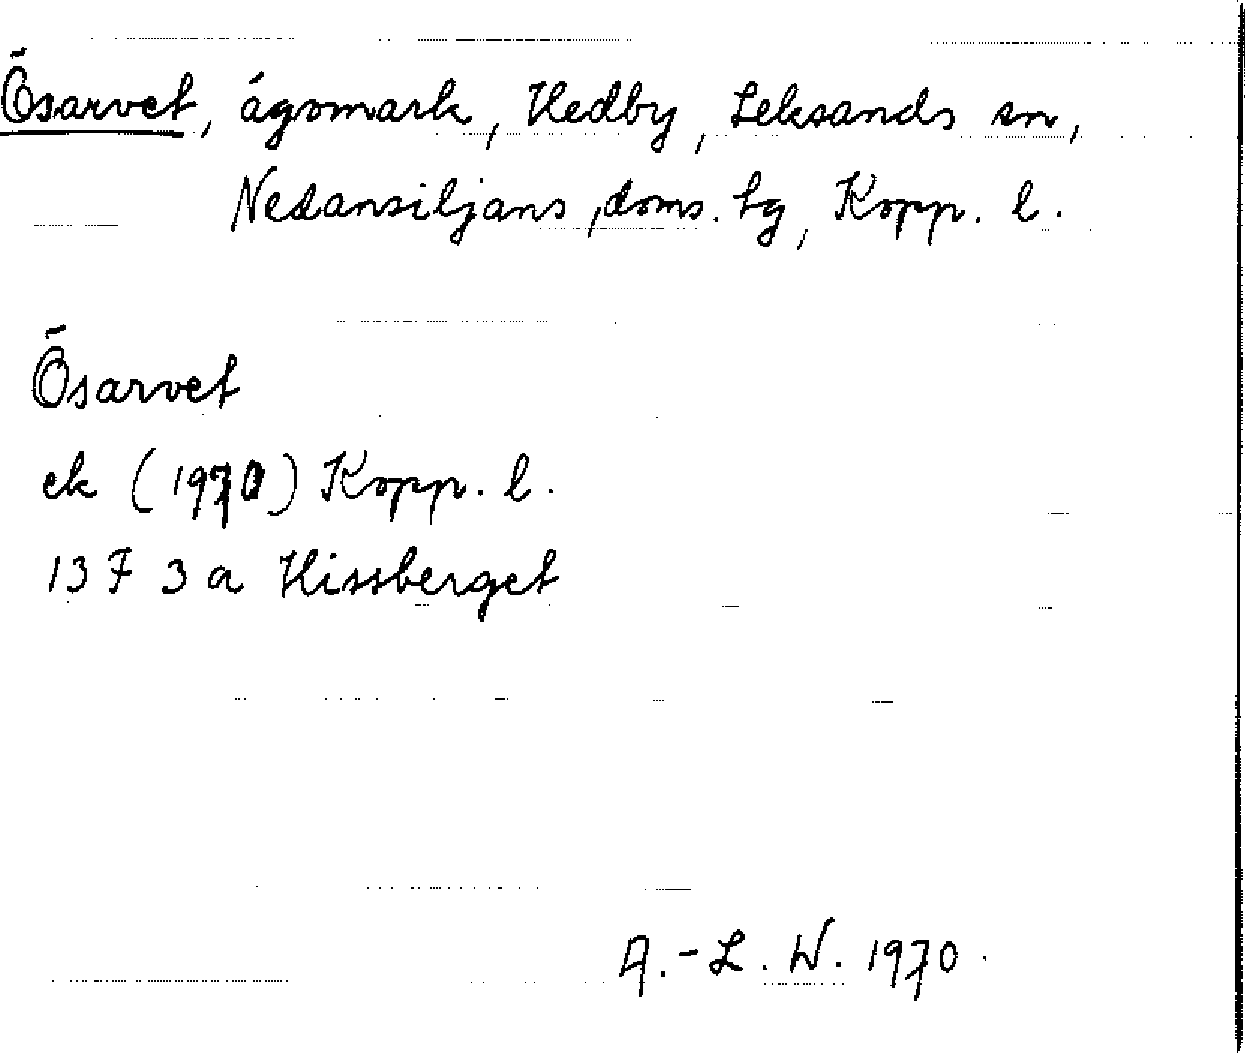 Ösarvet, ägomark, Hedby, Leksands sn,
Nedansiljans doms. tg, Kopp. l.
Ösarvet
ek (1970) Kopp. l.
13 F 3 a Hissberget
A.-L. W. 1970.